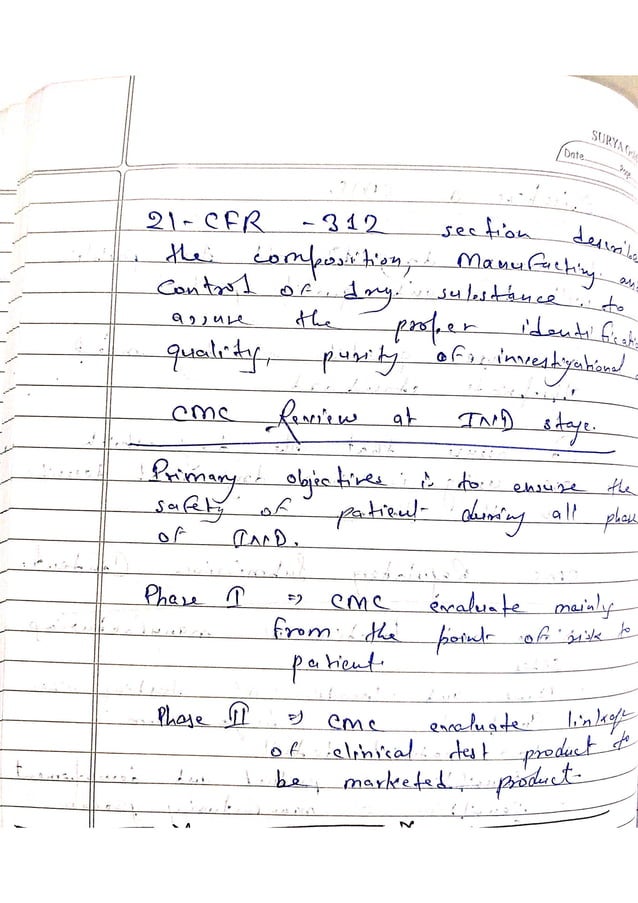 SURYA
Date
Page
21-CFR - 312 section describe
the composition, Manufacting an
Control of drug substance to
assure the proper identificati
quality, purity of investigational
CMC Review at IND stage.
Primary objectives is to ensure the
safety of patient during all phase
of IND.
Phase I ⇒ CMC evaluate mainly
from the point of risk to
patient.
Phase II ⇒ CMC evaluate linkage
of clinical test product to
be marketed product.